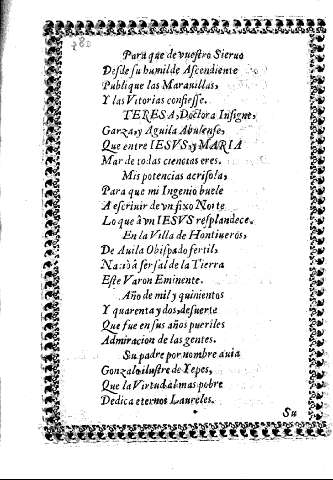 Para que de vuestro Siervo
Desde su humilde Ascendiente
Publique las Maravillas,
Y las Vitorias confiesse.
TERESA, Doctora Insigne,
Garza, y Aguila Abulense,
Que entre IESVS, y MARIA
Mar de todas ciencias eres.
Mis potencias acrisola,
Para que mi Ingenio buele
A escriuir de vn fixo Norte
Lo que â vn IESVS resplandece.
En la Villa de Hontiueròs,
De Auila Obispado fertil,
Naciò â ser sal de la Tierra
Este Varon Eminente.
Año de mil y quinientos
Y quarenta y dos, de suerte
Que fue en sus años pueriles
Admiracion de las gentes.
Su padre por nombre auia
Gonzalo ilustre de Yepes,
Que la Virtud al mas pobre
Dedica eternos Laureles.
Su